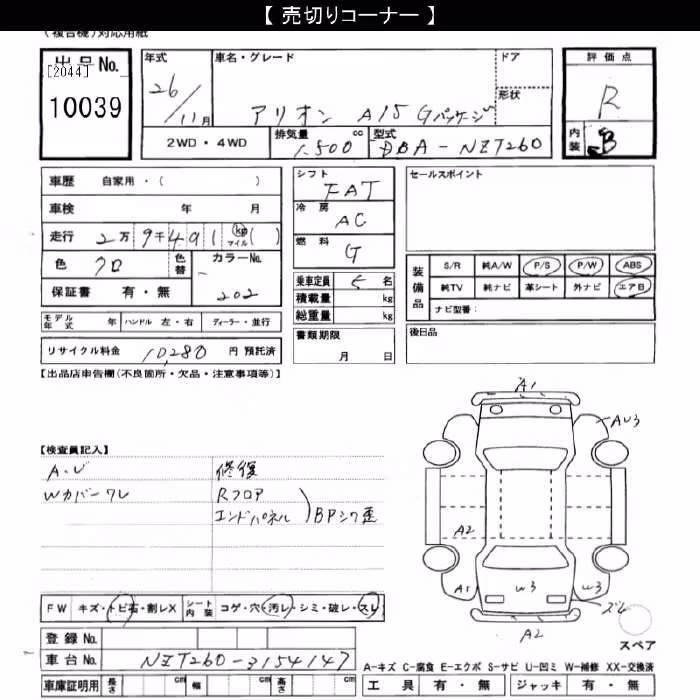 【 売切りコーナー 】
(複合機)対応用紙
出品No.
[2044]
10039
年式
26/11月
車名・グレード
アリオン A15 Gパッケージ
ドア
形状
2WD・4WD
排気量
1.500 cc
型式
DBA-NZT260
評価点
R
内装
B
車歴 自家用・( )
車検 年 月
走行 2万9千491 (km マイル)( )
色 クロ
色替
カラーNo.
202
保証書 有・無
モデル年式 年 ハンドル 左・右 ディーラー・並行
リサイクル料金 10,280 円 預託済
シフト
FAT
冷房
AC
燃料
G
乗車定員 5 名
積載量 kg
総重量 kg
書類期限
月 日
セールスポイント
装備品
S/R 純A/W P/S P/W ABS
純TV 純ナビ 革シート 外ナビ エアB
ナビ型番:
後日品
【出品店申告欄(不良箇所・欠品・注意事項等)】
【検査員記入】
A・U
Wカバーワレ
修復
Rフロア
エンドパネル
BPシワ歪
A1
AU3
A2
A1
W3
W3
ズレ
A2
スペア
FW キズ・トビ石・割レX
シート内装 コゲ・穴・汚レ・シミ・破レ・スレ
登録No.
車台No. NZT260-3154147
車庫証明用 長さ cm 幅 cm 高さ cm
A-キズ C-腐食 E-エクボ S-サビ U-凹ミ W-補修 XX-交換済
工具 有・無 ジャッキ 有・無